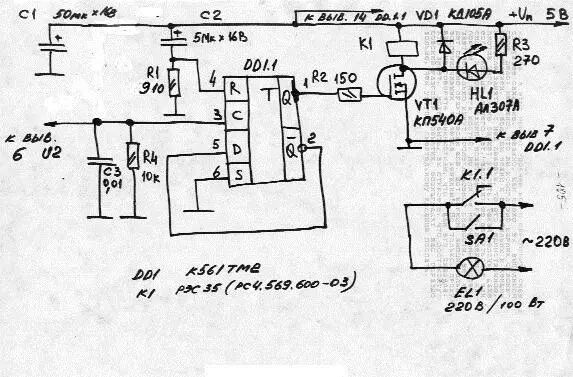 C1 50мк×16В
C2
5мк×16В
К ВЫВ. 14 DD1.1
VD1 КД105А
+Uп 5В
K1
R3
270
HL1
АЛ307А
R1
910
DD1.1
4 R T Q 1
R2 150
VT1
КП540А
К ВЫВ 7
DD1.1
К ВЫВ.
6 U2
3 C
5 D Q 2
6 S
C3
0,01
R4
10к
K1.1
SA1
~220В
EL1
220В/100 Вт
DD1 К561ТМ2
K1 РЭС35 (РС4.569.600-03)